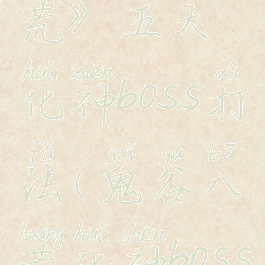 荒》 五大
huà shén dǎ
化神boss打
fǎ guǐ gǔ bā
法(鬼谷八
huāng huà shén
荒化神boss